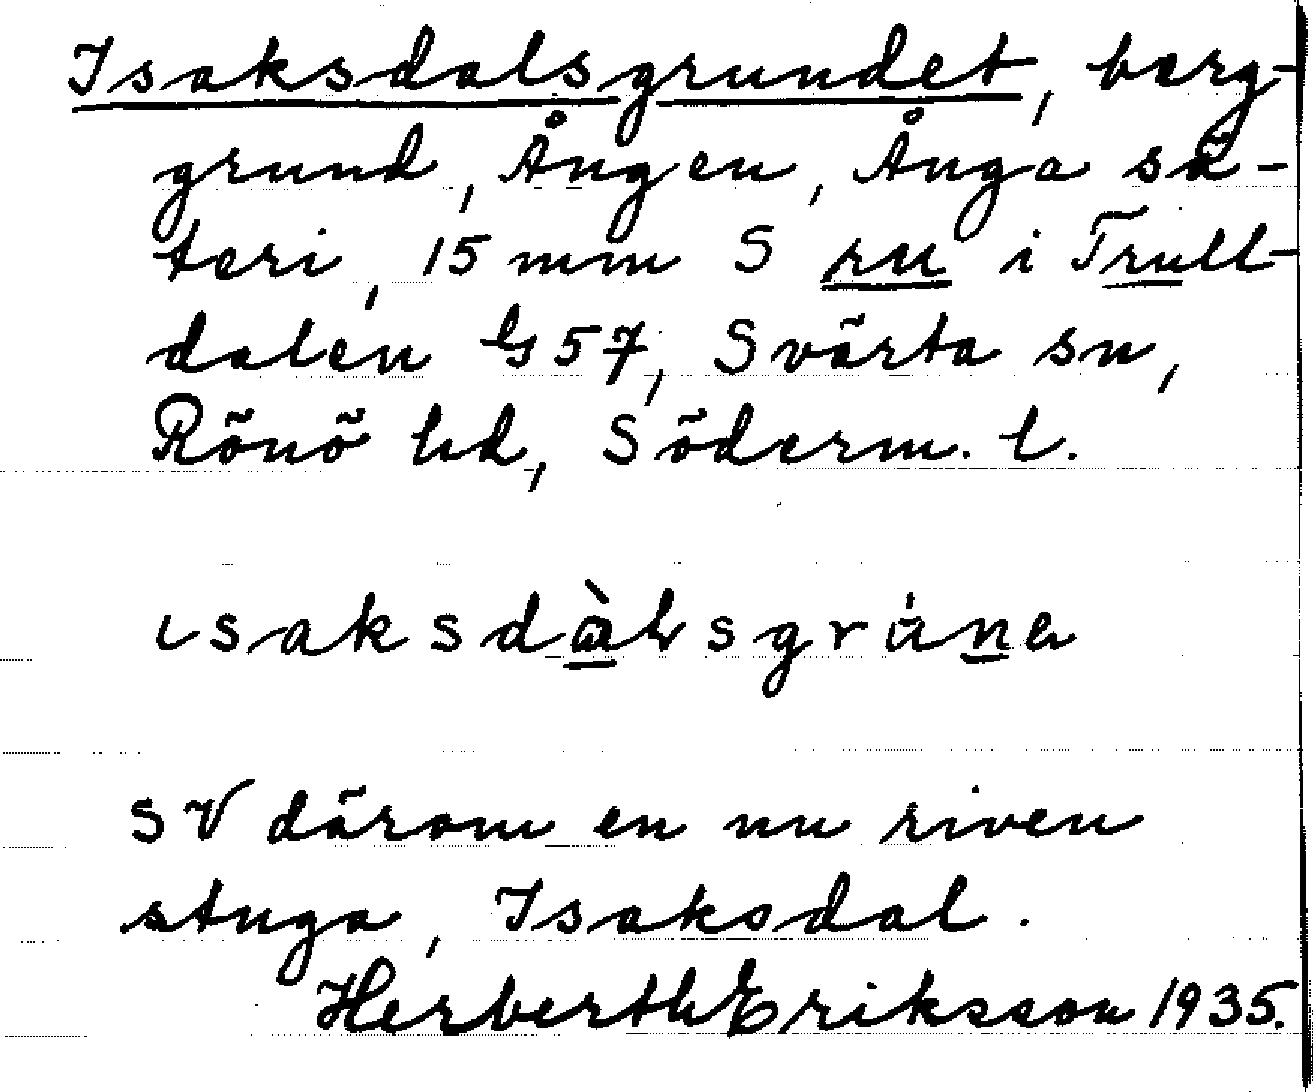 Isaksdalsgrundet, berg-
grund, Ången, Ånga sä-
teri, 15 mm S ru i Trull-
dalen G57, Svärta sn,
Rönö hd, Söderm. l.
SV därom en nu riven
stuga, Isaksdal.
Herberth Eriksson 1935.